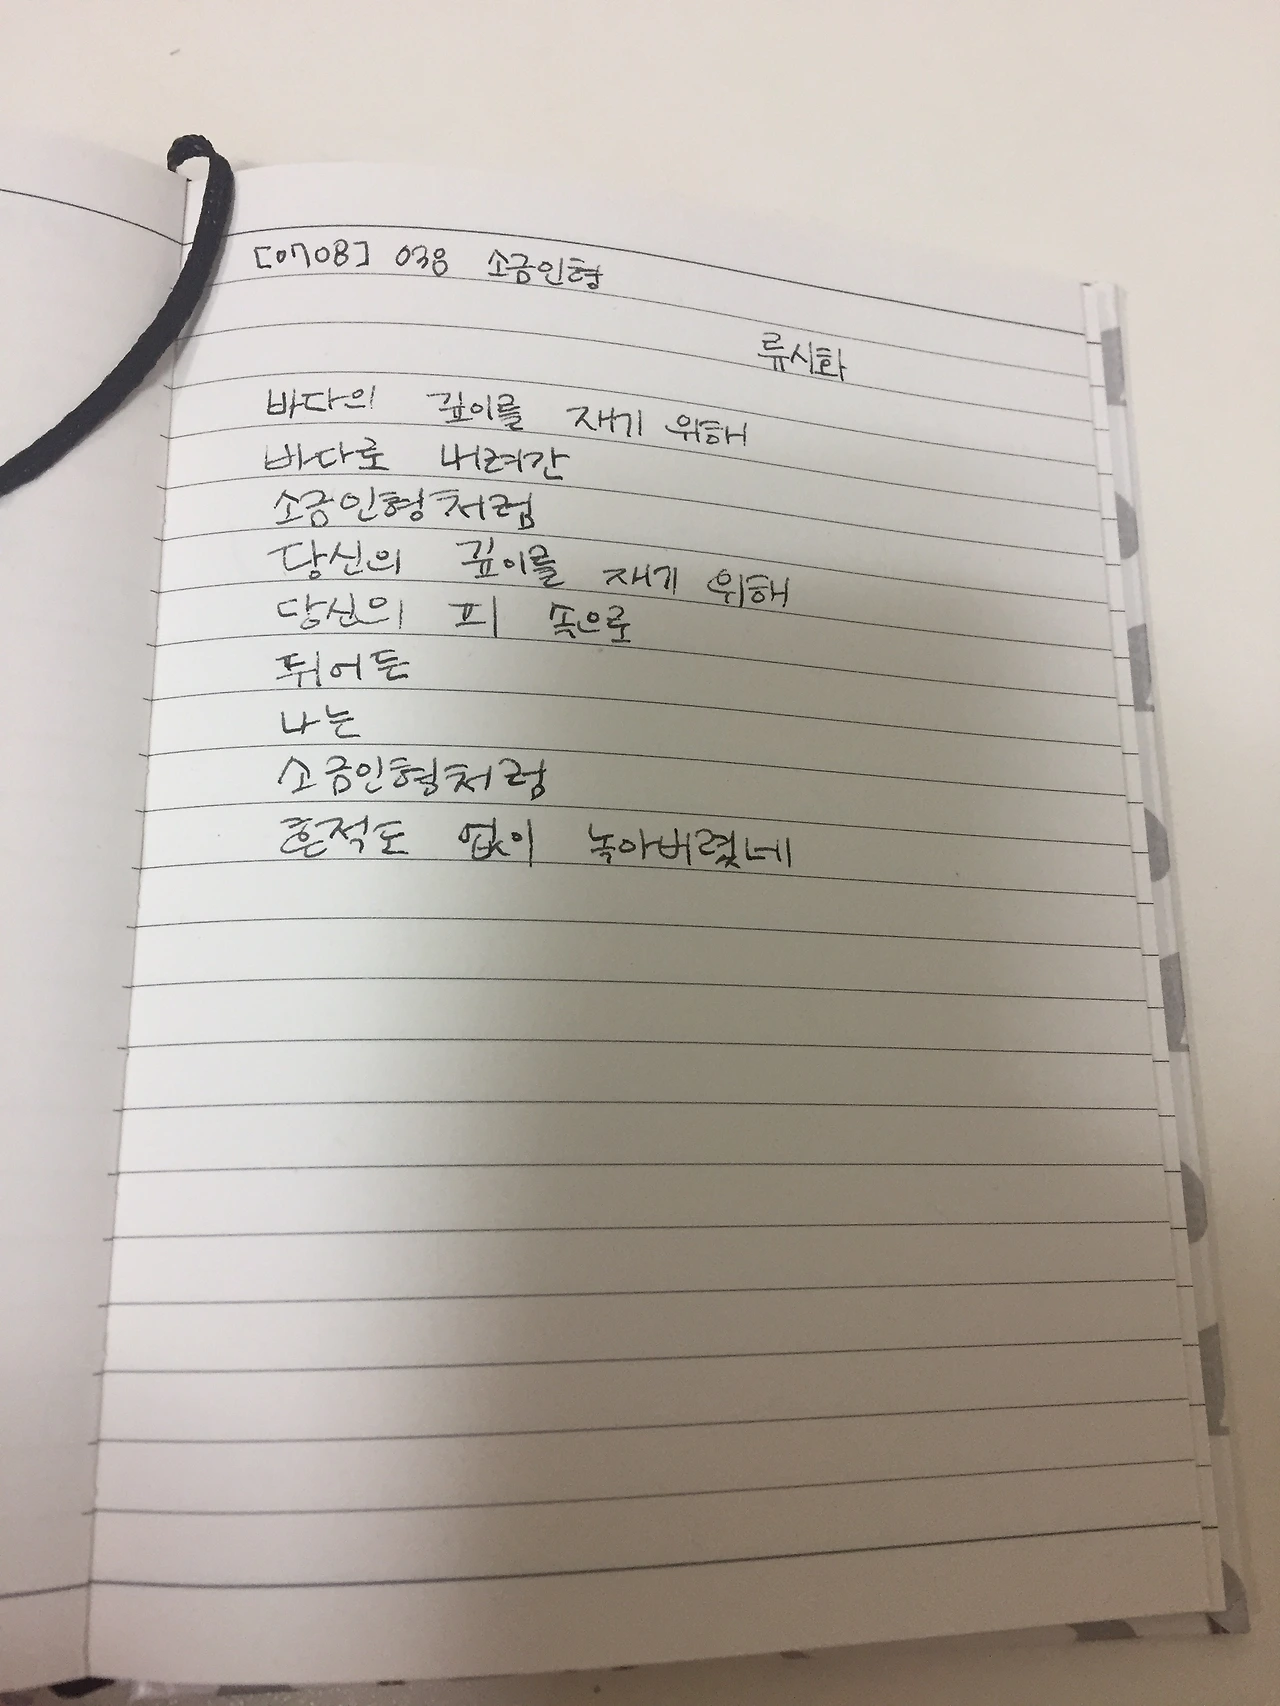 [0708] 038 소금인형
류시화
바다의 깊이를 재기 위해
바다로 내려간
소금인형처럼
당신의 깊이를 재기 위해
당신의 피 속으로
뛰어든
나는
소금인형처럼
흔적도 없이 녹아버렸네